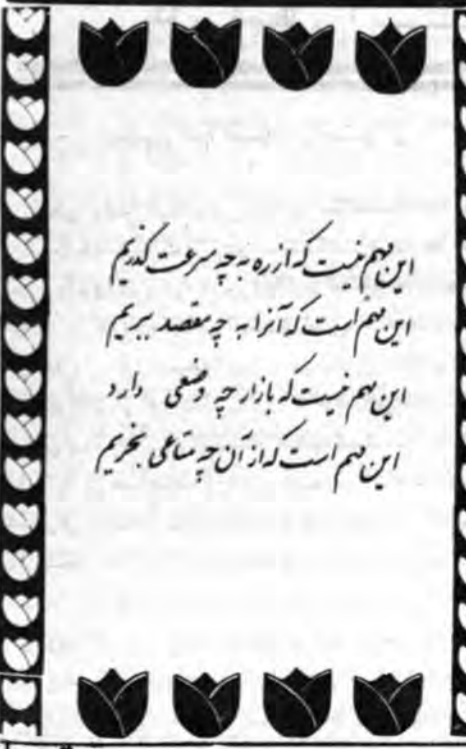 این مهم نیست که از ره به چه سرعت گذریم
این مهم است که آنرا به چه مقصد ببریم
این مهم نیست که بازار چه وضعی دارد
این مهم است که از آن چه متاعی بخریم